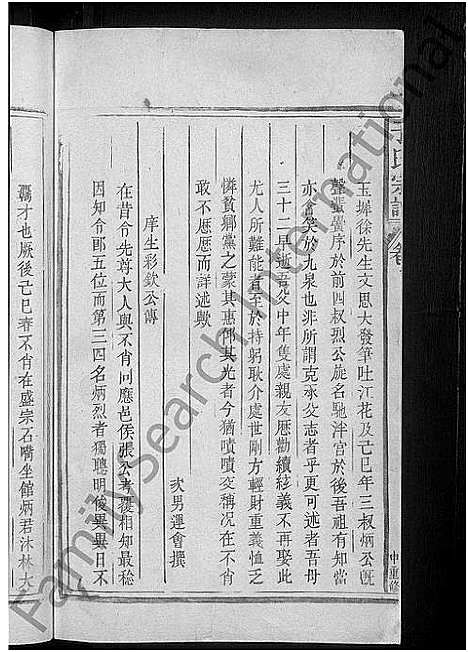 玉墀徐先生文思大發筆吐江花及己巳年三叔炳公旣
聲蜚黌序於前四叔烈公旋名馳泮宮於後吾祖有知當
亦含笑於九泉也非所謂克承父志者乎更可述者吾母
三十二早逝吾父中年隻處親友厯勸續絃義不再娶此
尤人所難能者至於持躬耿介處世剛方輕財重義恤乏
憐貧鄉黨之蒙其惠邱其光者今猶嘖嘖交稱况在不肖
敢不厯厯而詳述歟
次男運會撰
庠生彩欽公傳
在昔令先尊大人與不肖同應邑侯張公考覆相知最稔
因知令郎五位而第三四名炳烈者獨聰明俊異異日不
羈才也厥後己巳春不肖在盛宗石嘴坐館炳君沐林大
氏宗譜
卷
中重修
FamilySearch International